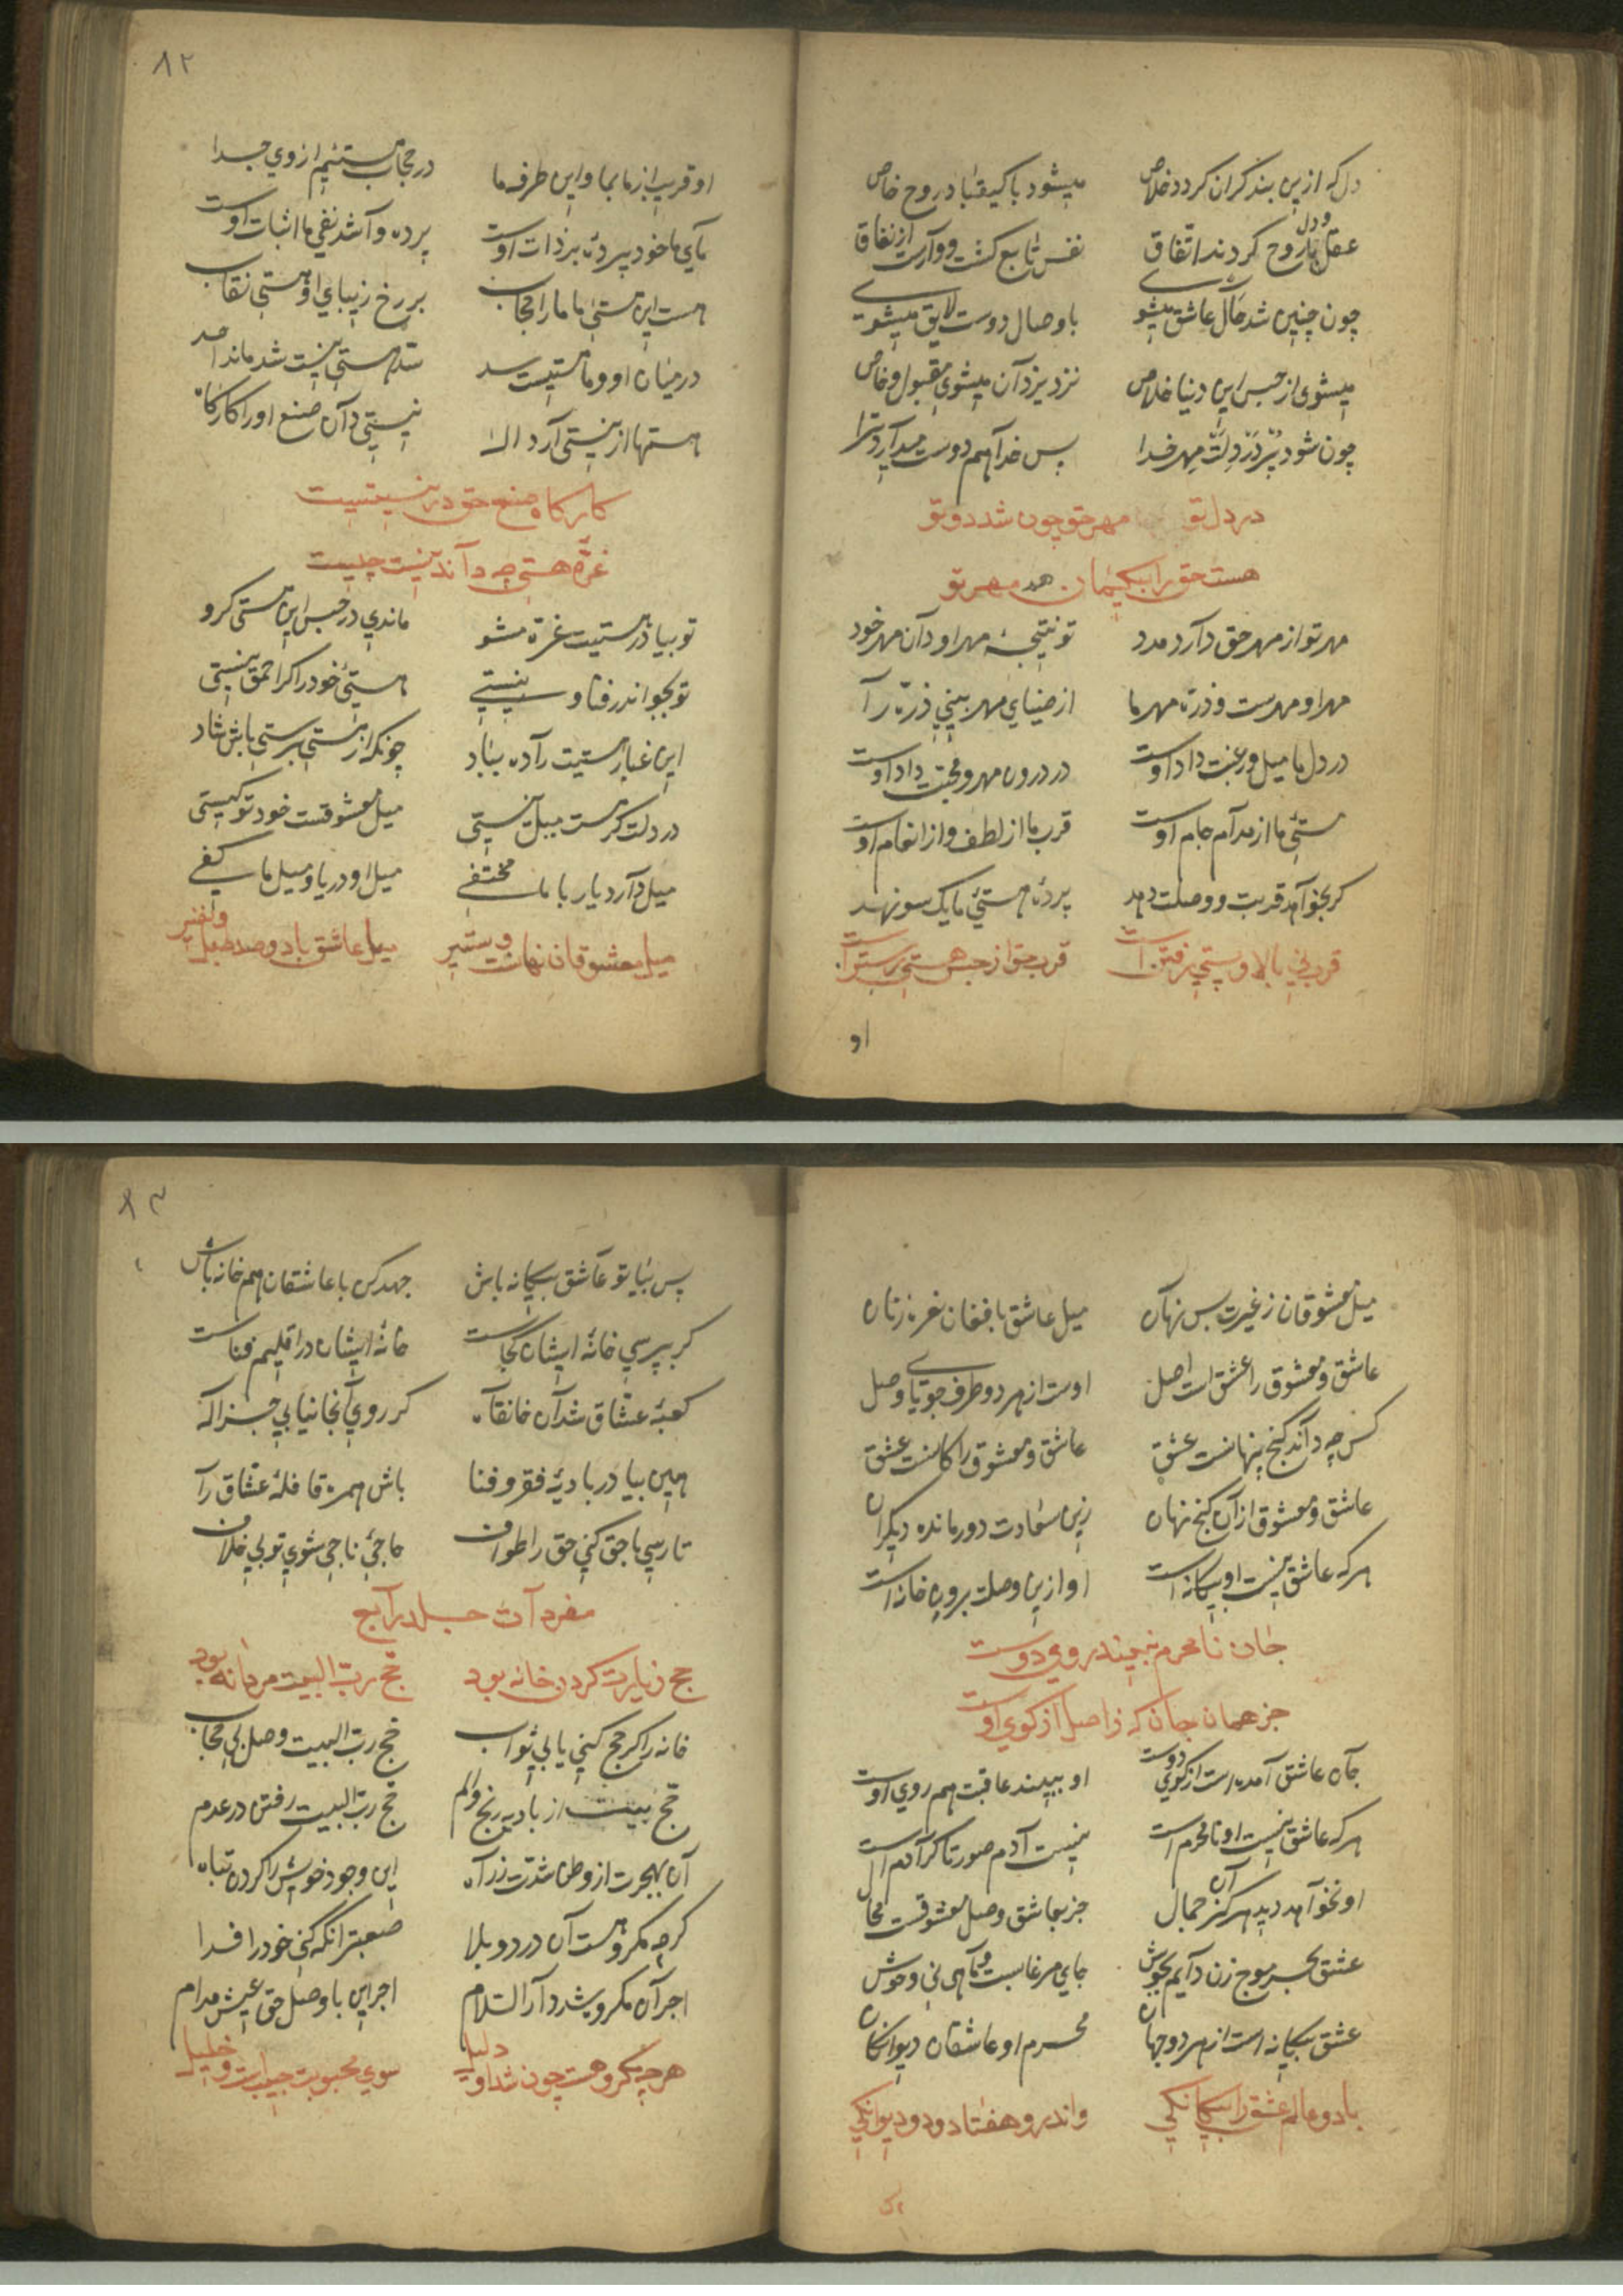 دل که ازین بند گران گردد خلاص میشود با کیقباد روح خاص
عقل و دل با روح کردند اتّفاق نفس تابع گشت و وارست از نفاق
چون چنین شد حال عاشق میشوی با وصال دوست لایق میشوی
میشوی از حبس این دنیا خلاص نزد یزدان میشوی مقبول و خاص
چون شود پُر دَر دِلَت مِهر خدا پس خدا هم دوست میدارد ترا
در دل تو مهر حق چون شد دوتو
هست حق را بیگمان هم مهر تو
مهر تو از مهر حق دارد مدد تو نتیجهٔ مهر او دان مهر خود
مهر او مهرست و ذره مهر ما از ضیای مهر بینی ذرّه را
در دل ما میل و رغبت داد اوست در درون مهر و محبّت داد اوست
مستئ ما از مدام جام اوست قرب ما از لطف و از انعام اوست
گر بخواهد قربت و وصلت دهد پردهٔ هستئ ما یک سو نهد
قرب نی بالا و پستی رفتن است قرب حق از حبس هستی رستن است
او
٨٢
او قریب از ما بما و این طرفه ما در حجاب هستئیم از وی جدا
مایی ما خود پردهٔ بر ذات اوست پرده وا شد نفی ما اثبات اوست
هست این هستئ ما ما را حجاب بر رخ زیبای او هستی نقاب
در میان او و ما هستیست سد سدّ هستی نیست شد ماند احد
هستها از نیستی آرد اله نیستی دان صنع او را کارگاه
کارگاه صنع حق در نیستیست
غرّهٔ هستی چه داند نیست چیست
تو بیا در هستیت غره مشو ماندی در حبس این هستی گرو
تو بجو اندر فنا و نیستی هستئ خود را گر احمق نیستی
این غبار هستیت را ده بباد چونکه از هستی برستی باش شاد
در دلت گر هست میل نیستی میل معشوقست خود تو کیستی
میل دارد یار با ما مختفی میل او دریا و میل ما کفی
میل معشوقان نهانست و ستیر میل عاشق با دو صد طبل و نفیر
میل معشوقان ز غیرت بس نهان میل عاشق با فغان نعره زنان
عاشق و معشوق را عشق است اصل اوست از هر دو طرف جویای وصل
کس چه داند گنج پنهانست عشق عاشق و معشوق را کانست عشق
عاشق و معشوق از آن گنج نهان زین سعادت دور مانده دیگران
هرکه عاشق نیست او بیگانه است او ازین وصلت برون خانه است
جان نامحرم نبیند روی دوست
جز همان جان که ز اصل از کوی اوست
جان عاشق آمده است از کوی دوست او ببیند عاقبت هم روی اوست
هرکه عاشق نیست او نامحرم است نیست آدم صورتا گر آدم است
او نخواهد دید هرگز آن جمال جز بعاشق وصل معشوقست محال
عشق بحر موج زن دایم بجوش جای مرغابست و ماهی نی وحوش
عشق بیگانه است از هر دو جهان محرم او عاشقان دیوانگان
با دو عالم عشق را بیگانگی و اندرو هفتاد و دو دیوانگی
٨٣
پس بیا تو عاشق بیگانه باش جهد کن با عاشقان هم خانه باش
گر بپرسی خانهٔ ایشان کجاست خانهٔ ایشان در اقلیم فناست
کعبهٔ عشاق شد آن خانقاه گر روی آنجا نیابی جز اله
هین بیا در بادیهٔ فقر و فنا باش همره قافلهٔ عشّاق را
تا رسی با حق کنی حق را طواف حاجئ ناجی شوی تو بی خلاف
مفردات جلد رابع
حج زیارت کردن خانه بود حج ربّ البیت مردانه بود
خانه را گر حج کنی یابی ثواب حج ربّ البیت وصل بی حجاب
حج بیت از بادیه رنج و الم حج ربّ البیت رفتن در عدم
آن بهجرت از وطن شدّت ز راه این وجود خویش را کردن تباه
گرچه مکروهست آن درد و بلا صعبتر آنکه کنی خود را فدا
اجر آن مکروه شد دار السّلام اجر این با وصل حق عیش مدام
هر چه مکروهست چون شد او دلیل سوی محبوبت حبیبست و خلیل